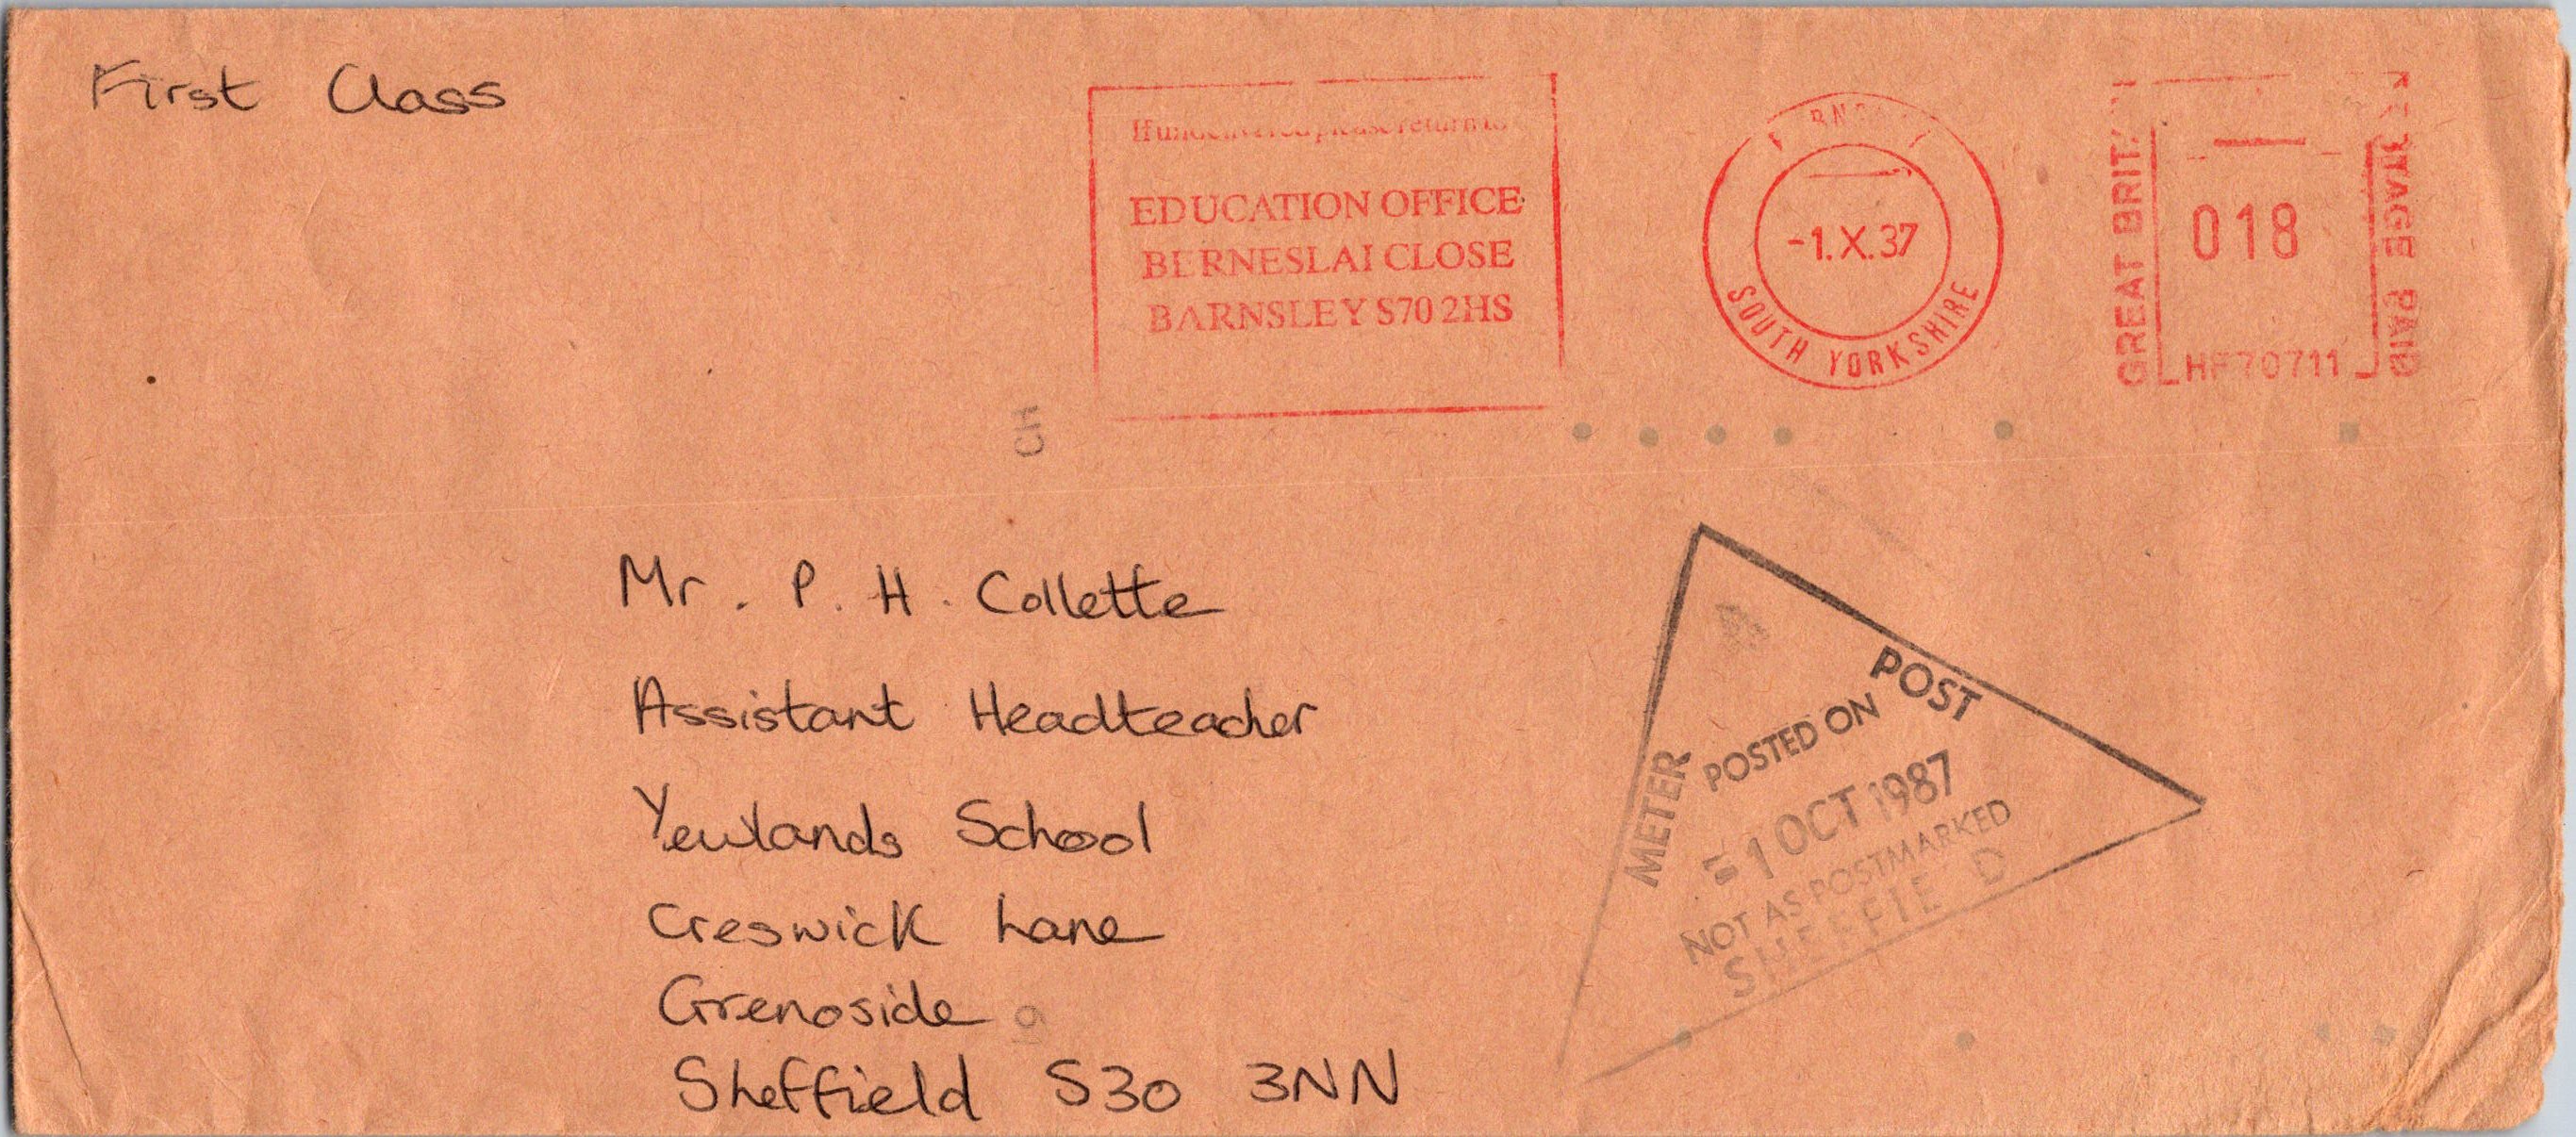 First Class
If undelivered please return to
EDUCATION OFFICE
BERNESLAI CLOSE
BARNSLEY S70 2HS
-1.X.37
SOUTH YORKSHIRE
GREAT BRIT
018
POSTAGE PAID
HF70711
CH
Mr. P. H. Collette
Assistant Headteacher
Yewlands School
Creswick Lane
Grenoside
Sheffield S30 3NN
METER
POST
POSTED ON
=1 OCT 1987
NOT AS POSTMARKED
SHEFFIE D